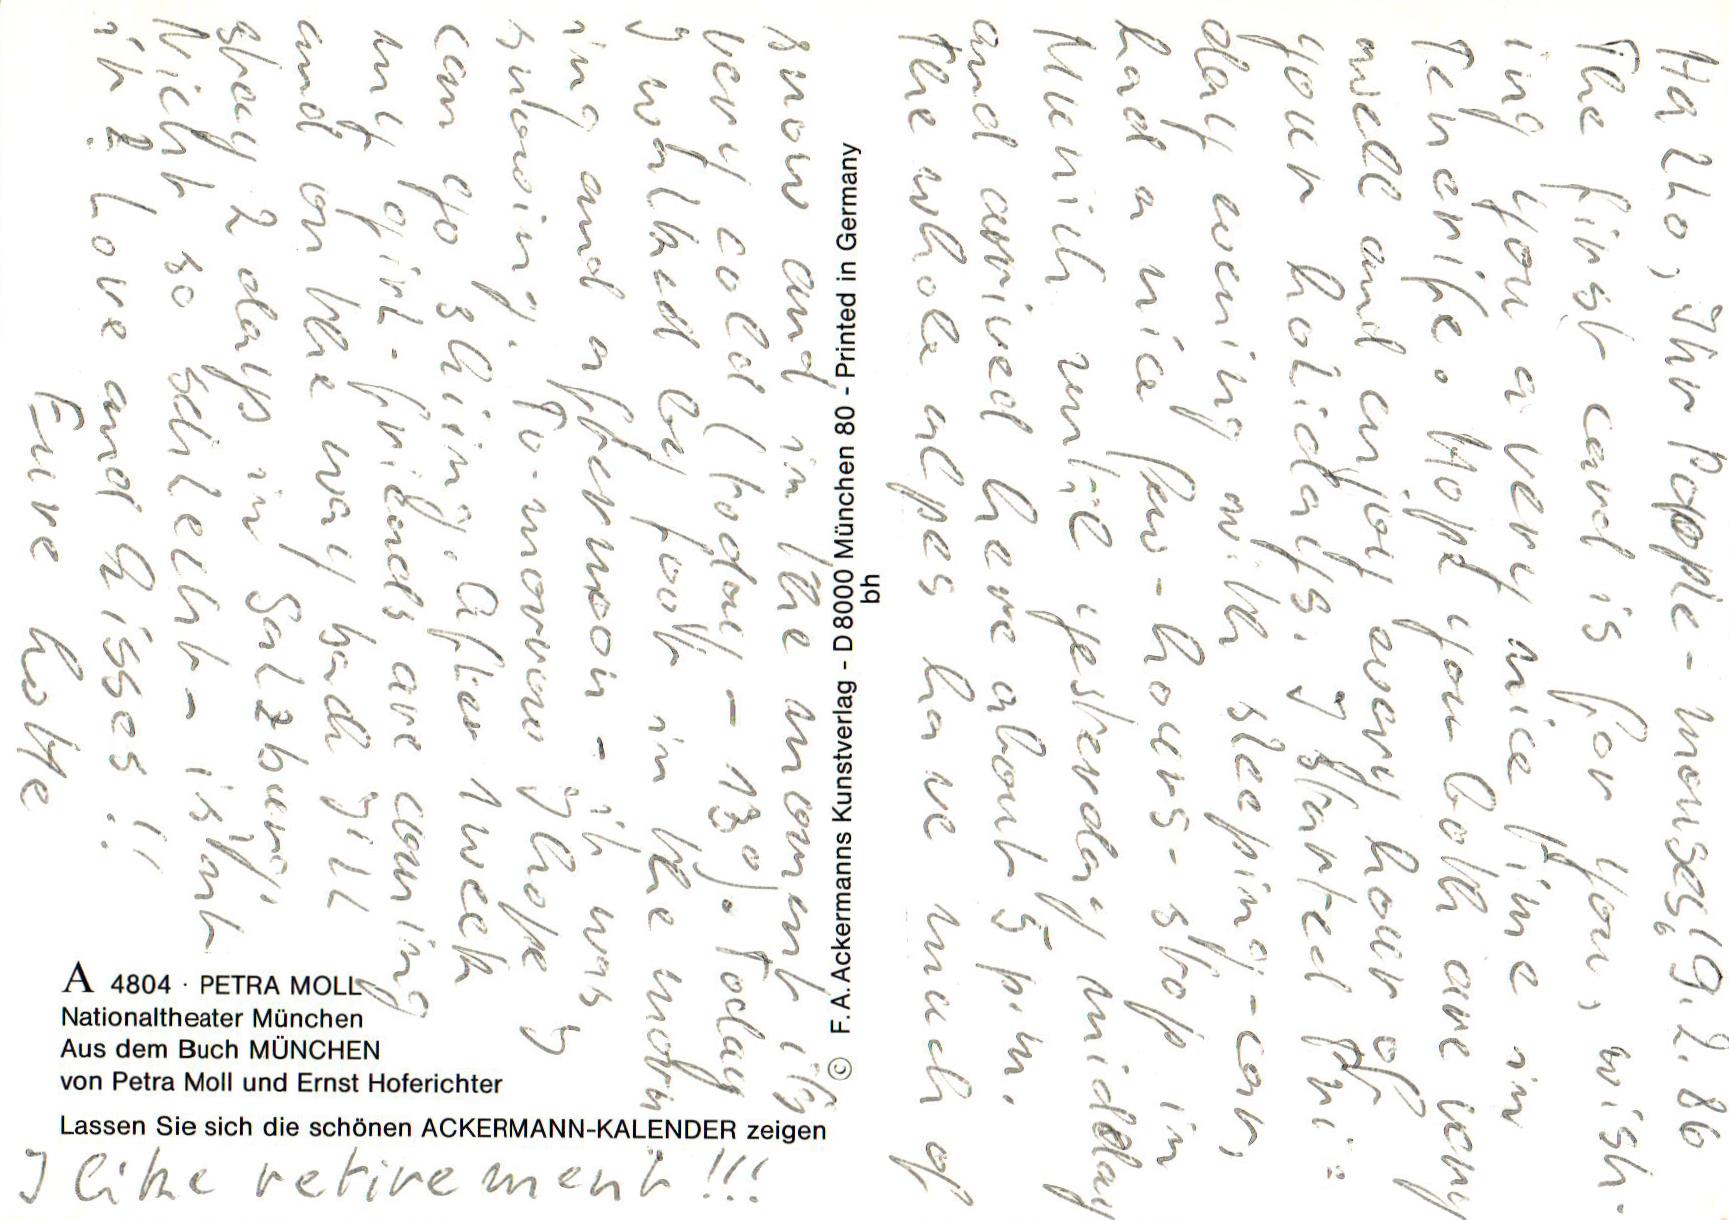 Hallo, Ihr Poppie-mouses, 9.2.86
The first card is for you, wish-
ing you a very nice time in
Tenerife. Hope you both are very
well and enjoy every hour of
your holidays. I started Fri-
day evening with sleeping-car,
had a nice few-hours-stop in
Munich until yesterday midday
and arrived here about 5 p.m.
The whole alpes have much of
snow and in the moment it's
very cold (today - 13°). Today
I walked by foot in the morn
ing and afternoon - it was
snowing. To-morrow I hope I
can go skiing. After 1 week
my girl-friends are coming
and on the way back I'll
stay 2 days in Salzburg.
Nicht so schlecht - isn't
it? Love and kisses!!
Eure Lotte
© F. A. Ackermanns Kunstverlag - D 8000 München 80 - Printed in Germany
bh
A 4804 · PETRA MOLL
Nationaltheater München
Aus dem Buch MÜNCHEN
von Petra Moll und Ernst Hoferichter
Lassen Sie sich die schönen ACKERMANN-KALENDER zeigen
I like retirement!!!